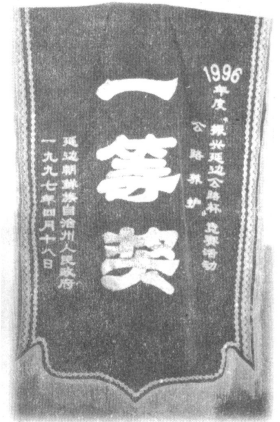 1996
年度“振兴延边公路杯”竞赛活动
公路养护
一等奖
延边朝鲜族自治州人民政府
一九九七年四月十八日